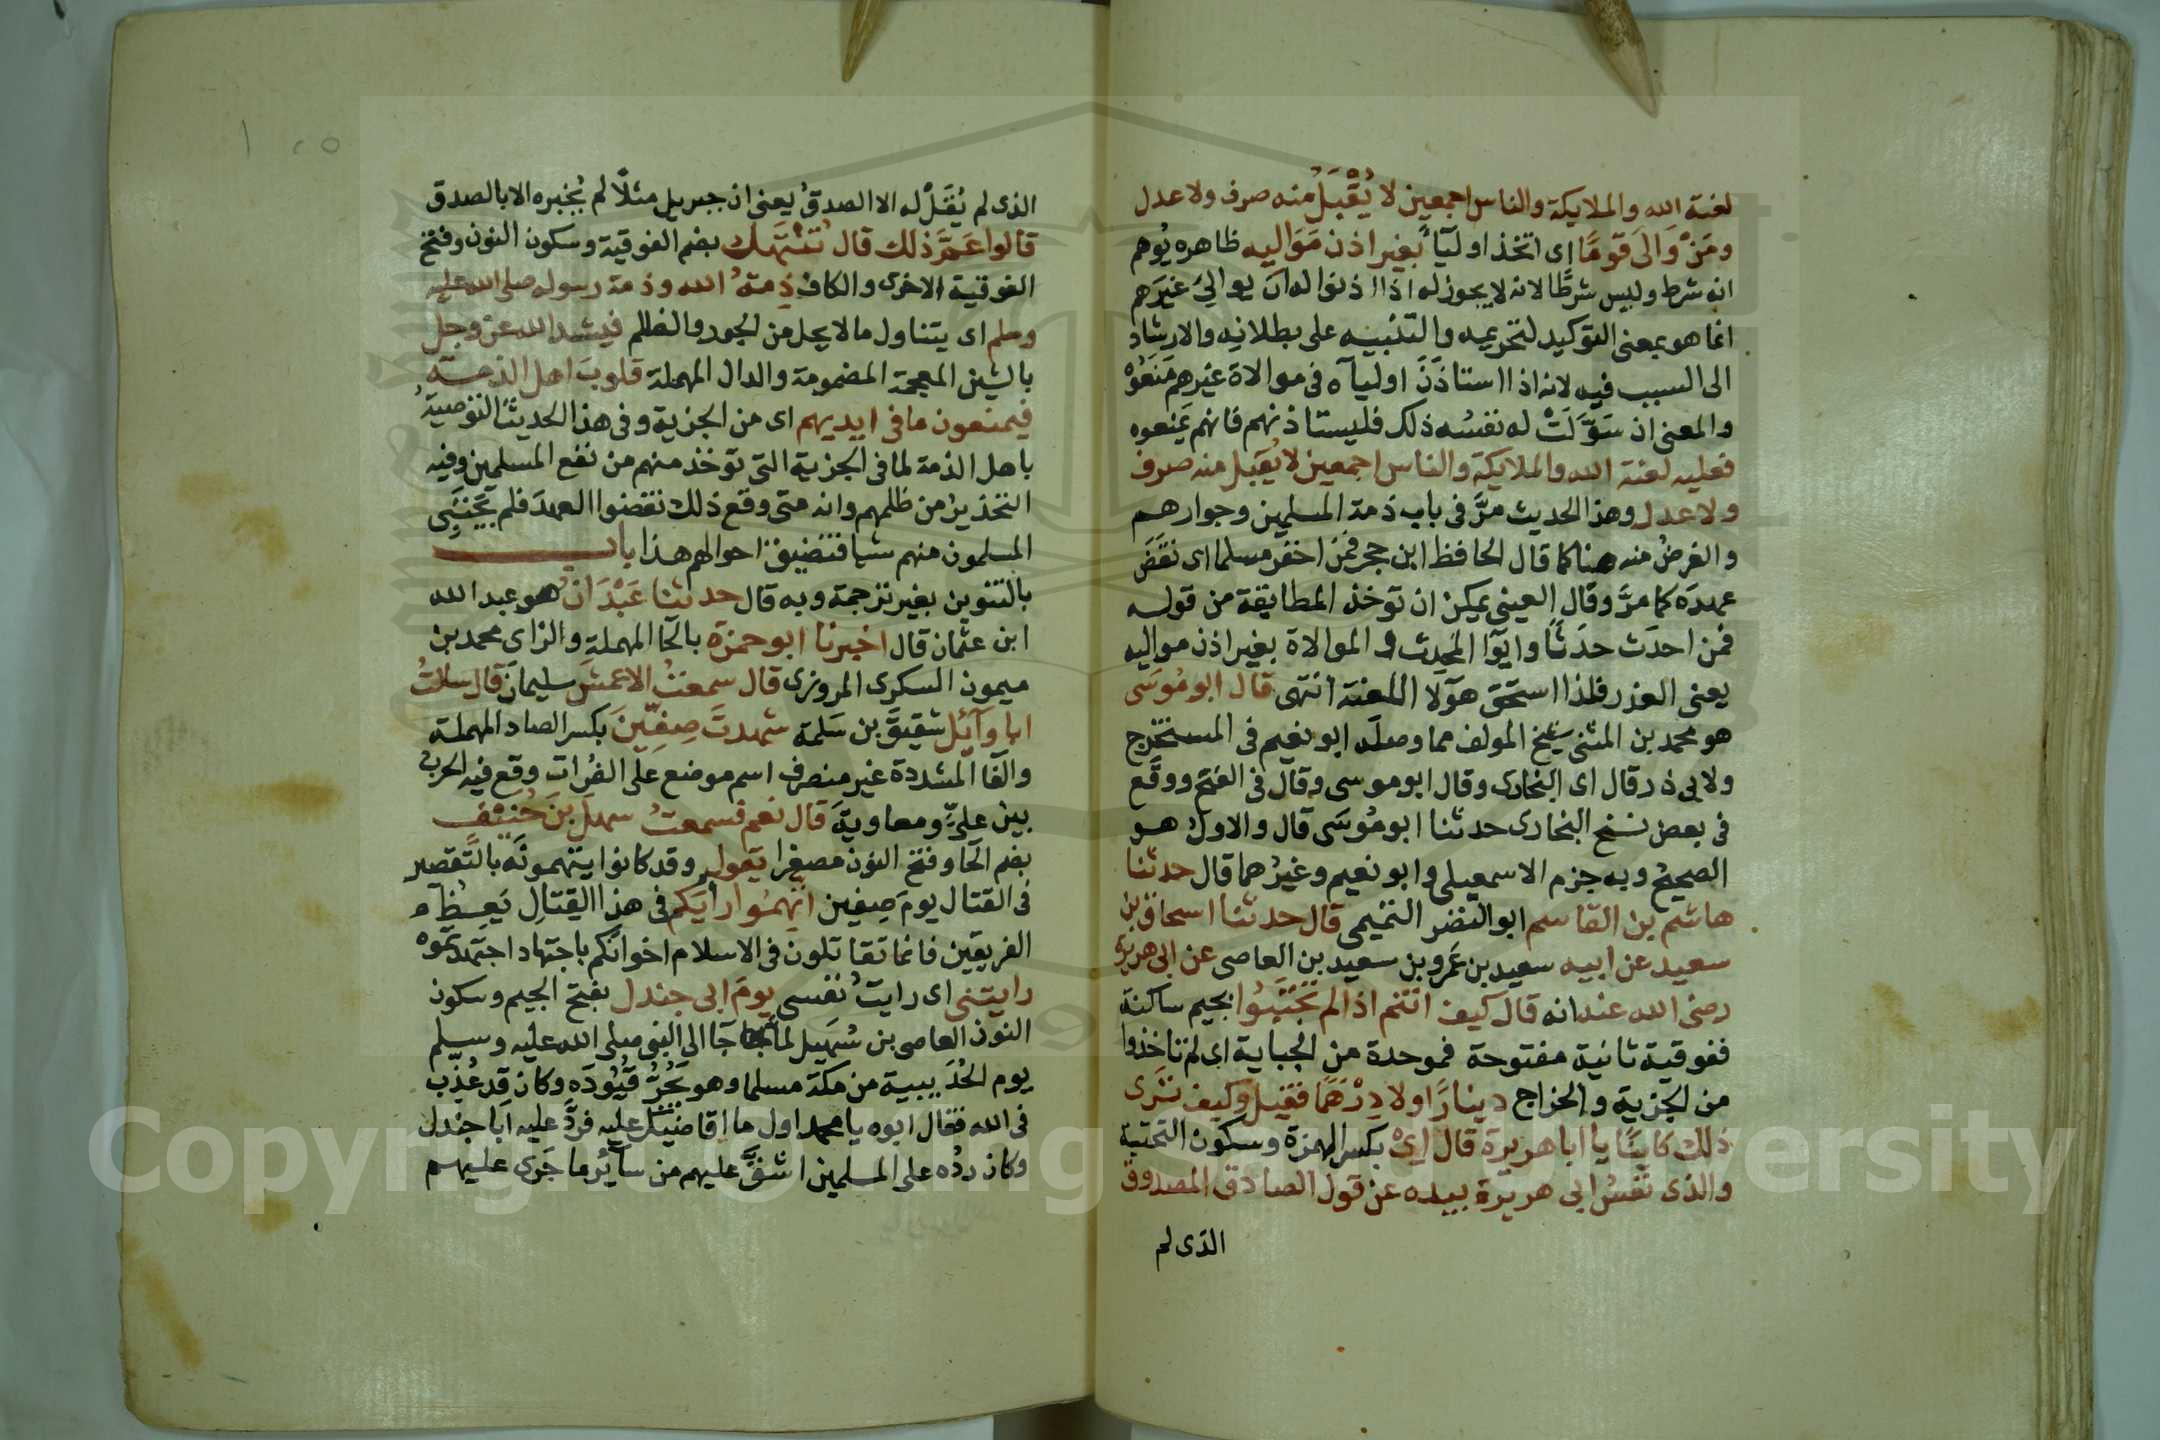 لعنة الله والملايكة والناس اجمعين لا يُقْبَلُ منه صرف ولا عدل
ومَنْ وَالَى قومًا اى اتخذ اوليآء بغير اذن مَوَاليه ظاهره يُوهم
انه شرط وليس شرطًا لانه لا يجوز له اذا اذنوا له ان يوالىَ غيرَهم
انما هو بمعنى التوكيد لتحريمه والتنبيه على بطلانه والارشاد
الى السبب فيه لانه اذا استاذَنَ اوليآه فى موالاة غيرهم مَنَعُوْه
والمعنى ان سَوَّلَتْ له نفسُه ذلك فليستاذنهم فانهم يَمْنعوه
فعليه لعنة الله والملايكة والناس اجمعين لا يُقبل منه صرف
ولا عدل وهذا الحديث مرَّ فى باب ذمة المسلمين وجوارهم
والغرضُ منه هنا كما قال الحافظ ابن حجر فمَن اخفر مسلما اى نَقَضَ
عهدَه كما مرَّ وقال العينى يمكن ان توخذ المطابقة من قوله
فمن احدَث حدَثًا واوَا المُحدث و الموالاة بغير اذن مواليه
يعنى العذر فلذا استَحَق هولا اللعنة انتهى قال ابو مُوسَى
هو محمد بن المثنى شيخ المولف مما وصلَه ابو نعيم فى المستخرج
ولابى ذر قال اى البخارى وقال ابو موسى وقال فى الفتح ووقَع
فى بعض نسخ البخارى حدثنا ابو مُوسَى قال والاول هو
الصحيحُ وبه جزم الاسمعيلى وابو نعيم وغيرُهما قال حدثنا
هاشم بن القاسم ابو النضر التميمى قال حدثنا اسحاق بن
سعيد عن ابيه سعيد بن عَمرو بن سعيد بن العاصى عن ابى هريرة
رضى الله عنه انه قال كيف انتم اذا لم تَجْتَبُوا بجيم ساكنة
ففوقية ثانية مفتوحة فموحدة من الجباية اى لم تاخذوا
من الجزية والخراج دينارًا ولا دِرْهَمًا فقيل وكيف تَرَى
ذلك كاينًا يا ابا هريرة قال اِىْ بكسر الهمزة وسكون التحتية
والذى نَفْسُ ابى هريرة بيده عن قول الصادق المصدوق
الذى لم
الذى لم يُقَلْ له الا الصدقُ يعنى ان جبريل مثلًا لم يُخبره الا بالصدق
قالوا عَمَّ ذلك قال تُنْتَهك بضم الفوقية وسكون النون وفتح
الفوقية الاخرى والكاف ذِمةُ الله وذمة رسوله صلى الله عليه
وسلم اى يتناول ما لا يحل من الجور والظلم فيشد الله عز وجل
بالشين المعجمة المضمومة والدال المهملة قلوبَ اهل الذمة
فيمنعون ما فى ايديهم اى من الجزية وفى هذا الحديث التوصيةُ
باهل الذمة لما فى الجزية التى توخذ منهم من نفع المسلمين وفيه
التحذيرُ من ظلمهم وانه متى وقع ذلك نقضوا العهدَ فلم يَجْتَبِى
المسلمون منهم شيا فتضيق احوالهم هذا باب
بالتنوين بغير ترجمة وبه قال حدثنا عَبْدَانُ هو عبد الله
ابن عثمان قال اخبرنا ابو حمزة بالحا المهملة والزاى محمد بن
ميمون السكرى المروزى قال سمعتُ الاعمشَ سليمانَ قال سالتُ
ابا وآئِل شقيقَ بن سَلمة شهدتَ صِفِّينَ بكسر الصاد المهملة
والفآ المشددة غير منصرف اسم موضع على الفُرات وقع فيه الحربُ
بين عليٍّ ومعاويةَ قال نعم فسمعتُ سهلَ بنَ حُنيْفٍ
بضم الحا وفتح النون مصغرا يقول وقد كانوا يتهمونَه بالتقصير
فى القتال يومَ صِفين اتهِمُوا رايَكم فى هذا القِتالِ يَعِظُ
الفريقين فانما تقاتلون فى الاسلام اخوانَكم باجتهاد اجتهدتموه
رايتنى اى رايتُ نَفسى يومَ ابى جندل بفتح الجيم وسكون
النون العاصى بن سُهَيل لما جَا الى النبى صلى الله عليه وسلم
يوم الحُدَيبية من مكة مسلما وهو يَجُرُّ قُيُودَه وكان قد عُذب
فى الله فقال ابوه يا محمد اول ما اقاضيك عليه فردَّ عليه ابا جندل
وكان ردُه على المسلمين اشقَّ عليهم من سآيُر ما جَرى عليهم
Copyright © King Saud University